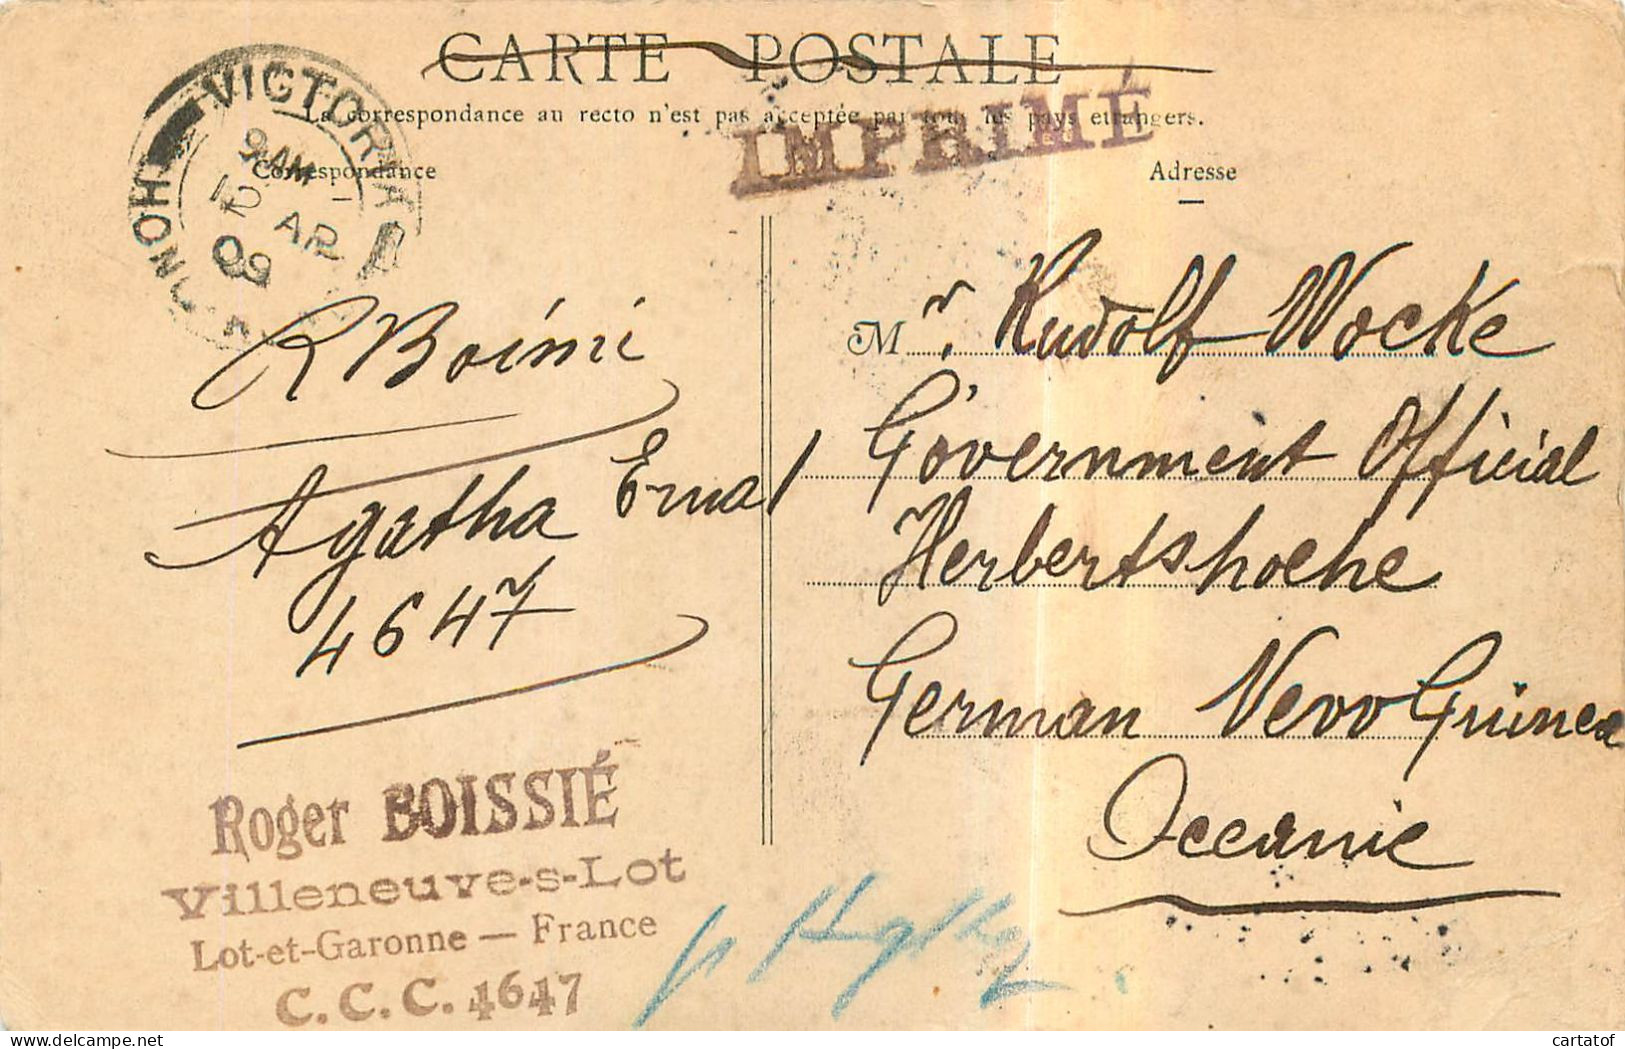 CARTE POSTALE
La correspondance au recto n'est pas acceptée par tous les pays etrangers.
IMPRIMÉ
Correspondance
Adresse
VICTORIA
HONG
9 AM
AP
09
Mr. Rudolf Wocke
Government Official
Herbertshoehe
German Nevv Guinea
Oceanie
R Boissié
Agatha
4647
Roger BOISSIÉ
Villeneuve-s-Lot
Lot-et-Garonne — France
C.C.C. 4647
cartatof